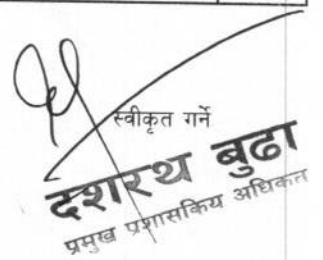 स्वीकृत गर्ने
दशरथ बुढा
प्रमुख प्रशासकिय अधिकृत